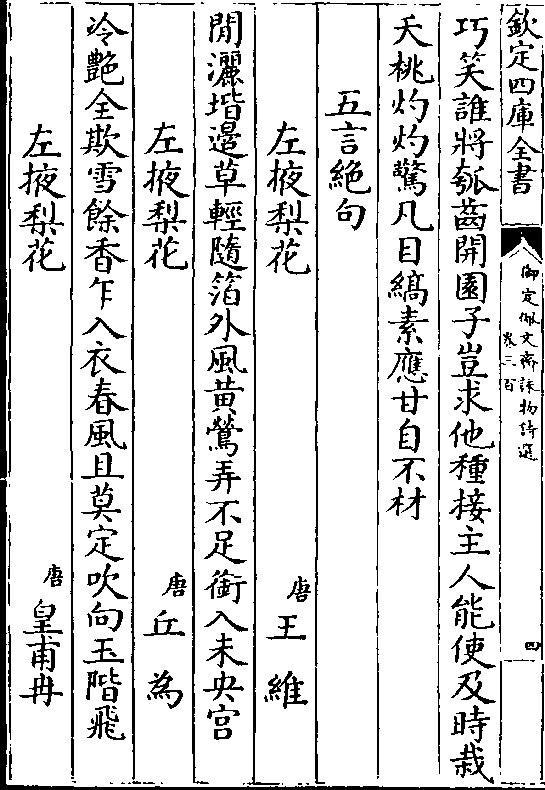 欽定四庫全書
御定佩文齋詠物詩選
卷三百
四
巧笑誰將瓠齒開園子豈求他種接主人能使及時栽
夭桃灼灼驚凡目縞素應甘自不材
五言絶句
左掖梨花
唐 王維
閒灑堦邊草輕隨箔外風黄鶯弄不足銜入未央宫
左掖梨花
唐 丘為
冷艷全欺雪餘香乍入衣春風且莫定吹向玉階飛
左掖梨花
唐 皇甫冉